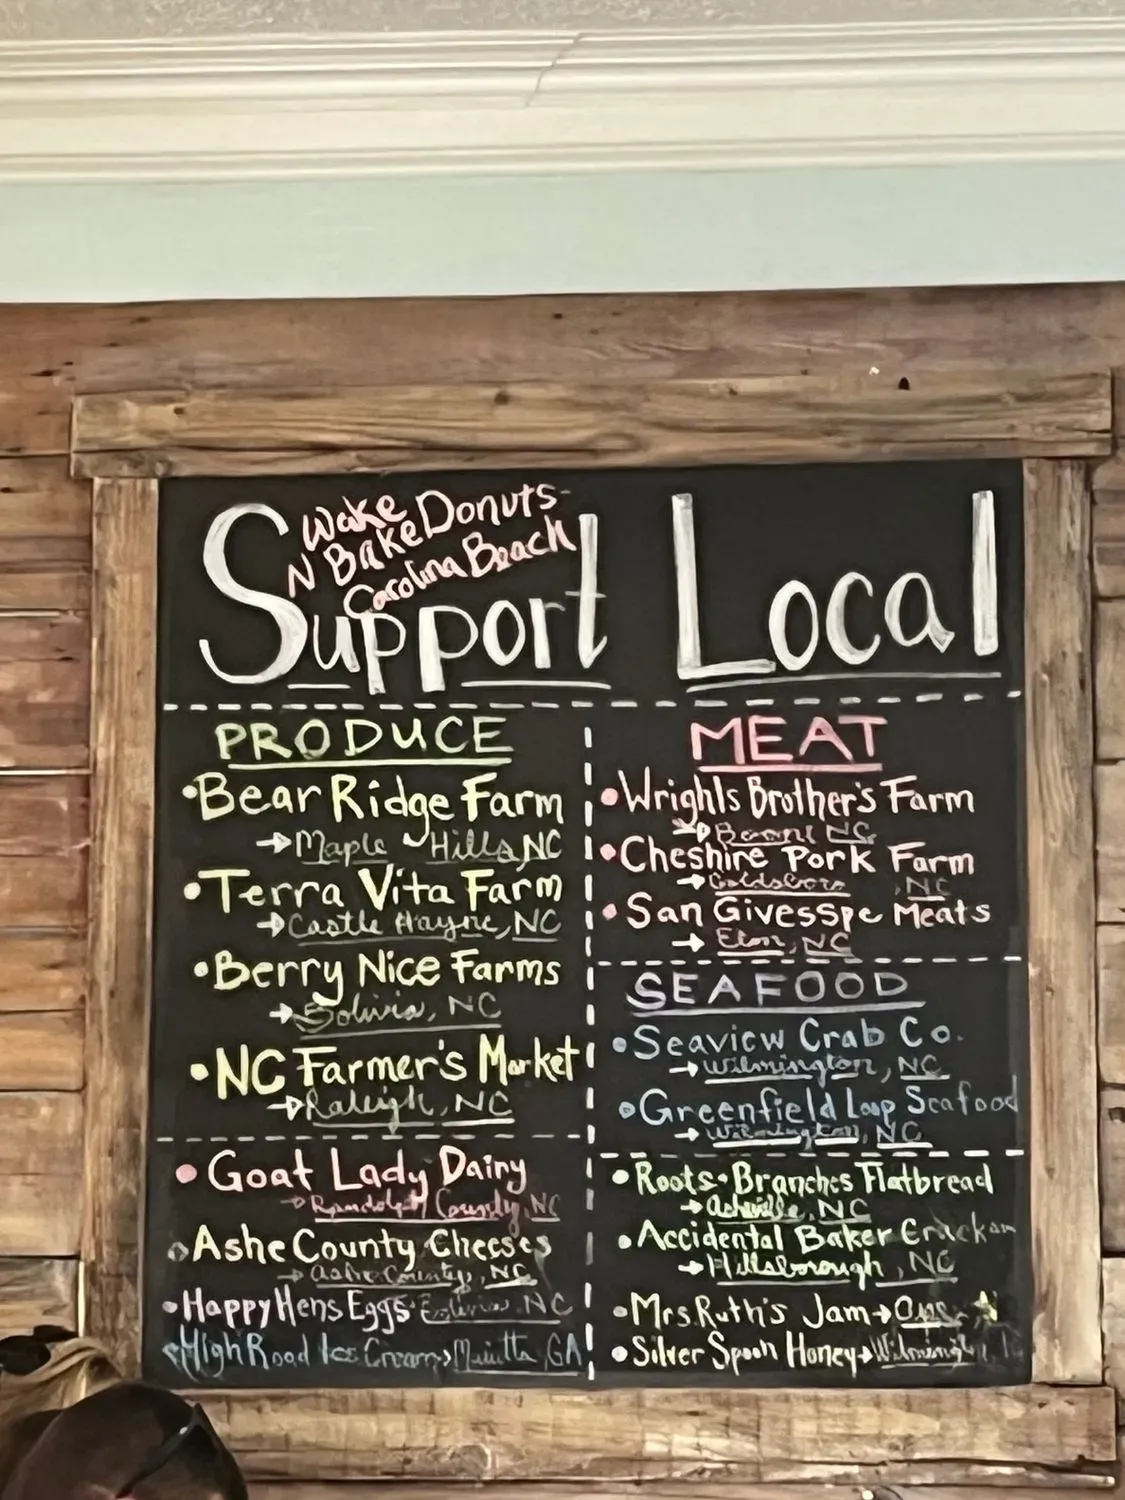 Wake
N Bake Donuts
Carolina Beach
Support Local
PRODUCE
• Bear Ridge Farm
→ Maple Hills, NC
• Terra Vita Farm
→ Castle Hayne, NC
• Berry Nice Farms
→ Bolivia, NC
• NC Farmer's Market
→ Raleigh, NC
• Goat Lady Dairy
→ Randolph County, NC
• Ashe County Cheeses
→ Ashe County, NC
• Happy Hens Eggs Bolivia, NC
• High Road Ice Cream → GA
MEAT
• Wrights Brother's Farm
→ NC
• Cheshire Pork Farm
→ Goldsboro, NC
• San Givesspe Meats
→ Elon, NC
SEAFOOD
• Seaview Crab Co.
→ Wilmington, NC
• Greenfield Loop Seafood
→ Wilmington, NC
• Roots • Branches Flatbread
→ Asheville, NC
• Accidental Baker
→ Hillsborough, NC
• Mrs. Ruth's Jam →
• Silver Spoon Honey → Wilmington